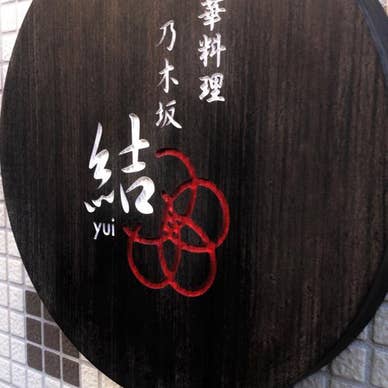 華料理
乃木坂
結
yui